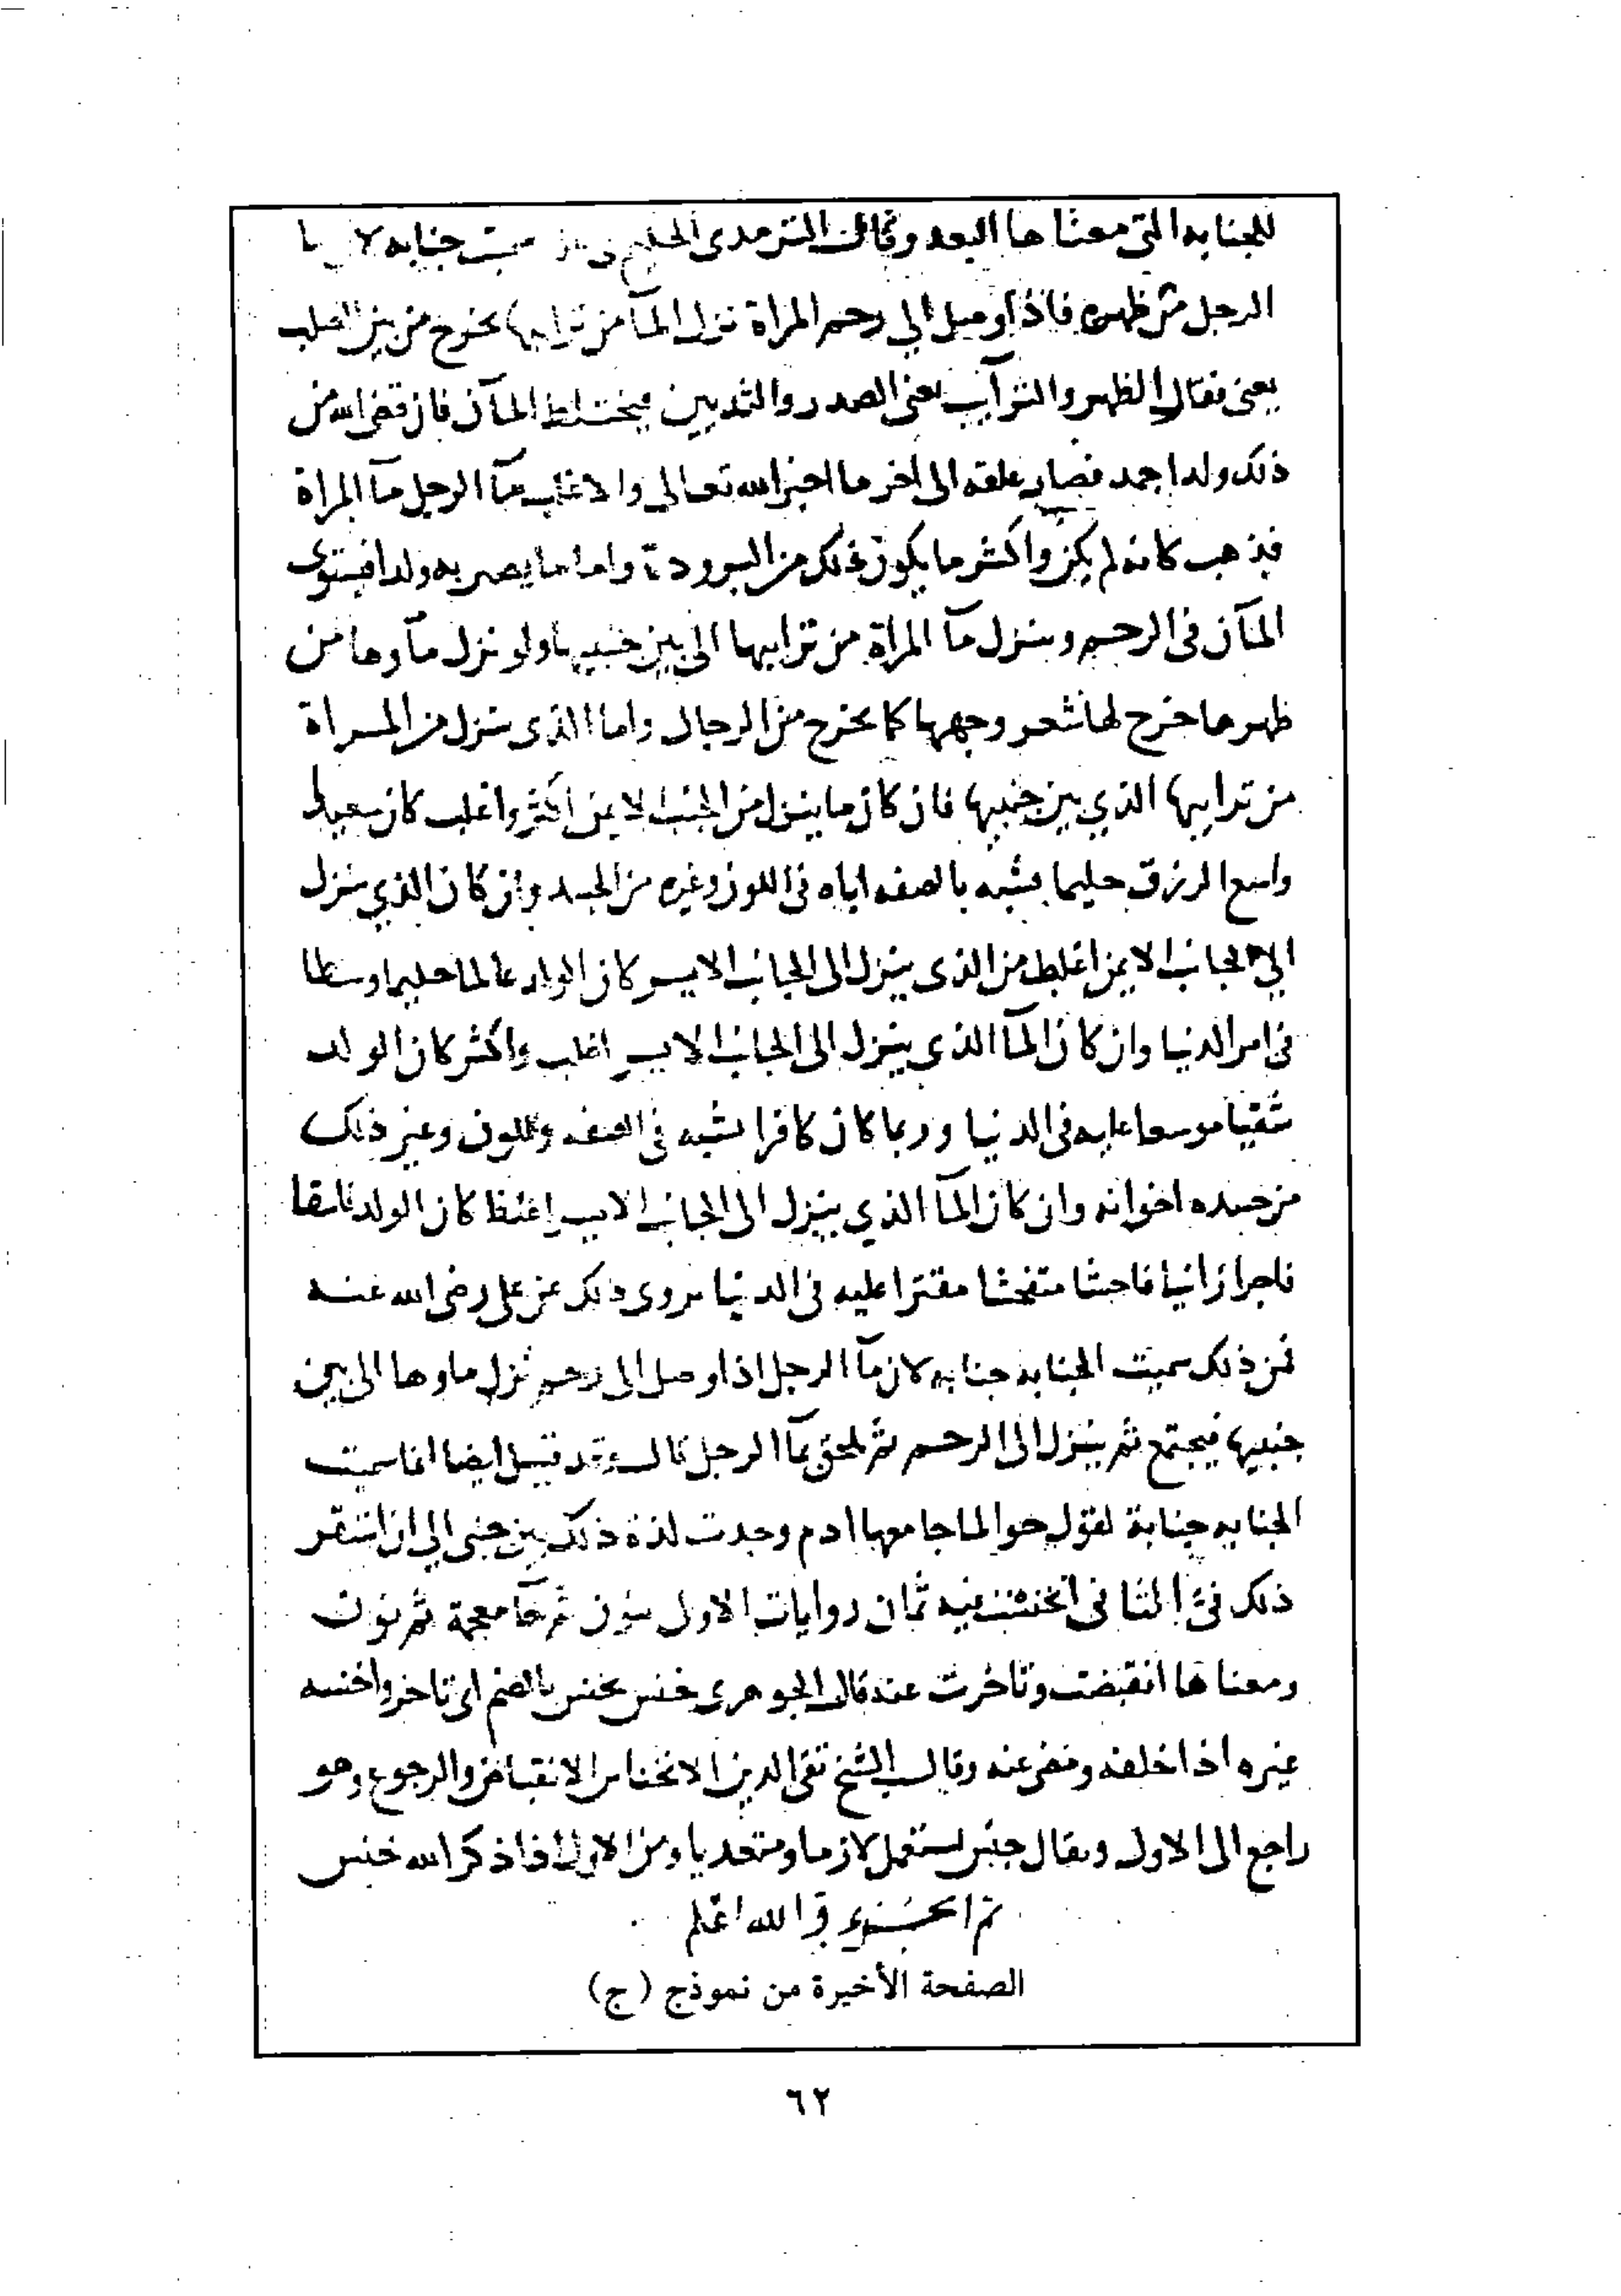 للجنابه التي معناها البعد وقال الترمدى الحكيم سميت جنابه لان ما
الرجل من ظهره فاذا وصل الي رحم المراة نزل المآ من ترايبها يخرج من بين الصلب
يعنى نقال الظهر والترآيب يعنى الصدر والثديين فيختلط المآن فان قضى الله من
ذلك ولدا جمد فصار علقه الى اخر ما اخبر الله تعالى والا غلب مآ الرجل مآ المراة
فيذهب كانه لم يكن واكثر ما يكون ذلك من البرودة واما ما يصير به ولدا فيستوى
المآن فى الرحم وينزل مآ المراة من ترايبها الى بين جنبيها ولو نزل مآوها من
ظهرها خرج لها شعر وجهها كما يخرج من الرجال واما الذى ينزل من المراة
من ترايبها الذي بين جنبيها فان كان ما ينزل من الجنب الايمن اكثر واغلب كان سعيدا
واسع الرزق حليما يشبه بالصفه اباه فى اللون وغيره من الجسد وان كان الذي ينزل
الي الجانب الايمن اغلظ من الذى ينزل الى الجانب الايسر كان الولد عالما حليما وسطا
فى امر الدنيا وان كان المآ الذي ينزل الى الجانب الايسر اغلب واكثر كان الولد
شقيا موسعا عليه فى الدنيا وربما كان كافرا يشبه فى الصفه واللون وغير ذلك
من جسده اخوانه وان كان المآ الذي ينزل الى الجانب الايسر اغلظ كان الولد فاسقا
فاجرا زانيا فاحشا متفحشا مقترا عليه فى الدنيا يروى ذلك عن على رضى الله عنه
فمن ذلك سميت الجنابه جنابه لان مآ الرجل اذا وصل الى رحم نزل ماوها الى بين
جنبيها فيجتمع ثم ينزل الى الرحم ثم يلحق بمآ الرجل قال وقد قيل ايضا انما سميت
الجنابه جنابة لقول حوا لما جامعها ادم وجدت لذة ذلك بين جنبى الي ان استقر
ذلك فى الثانى انخنست فيه ثمان روايات الاول بنون ثم خآ معجمة ثم نون
ومعناها انقبضت وتاخرت عنه قال الجوهرى خنس يخنس بالضم اى تاخر واخنسه
غيره اذا خلفه ومضى عنه وقال الشيخ تقى الدين الانخناس الانقباض والرجوع وهو
راجع الى الاول ويقال خنس يستعمل لازما ومتعديا ومن الاول اذا ذكر الله خنس
تم الجزء والله اعلم
الصفحة الأخيرة من نموذج (ج)
٦٢